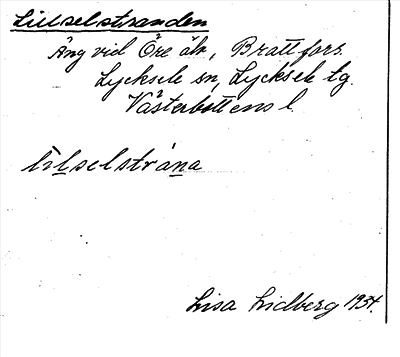 Lillselstranden
Äng vid Öre älv, Brattfors.
Lycksele sn, Lycksele tg.
Västerbottens l.
lilselstrána
Lisa Lidberg 1934.